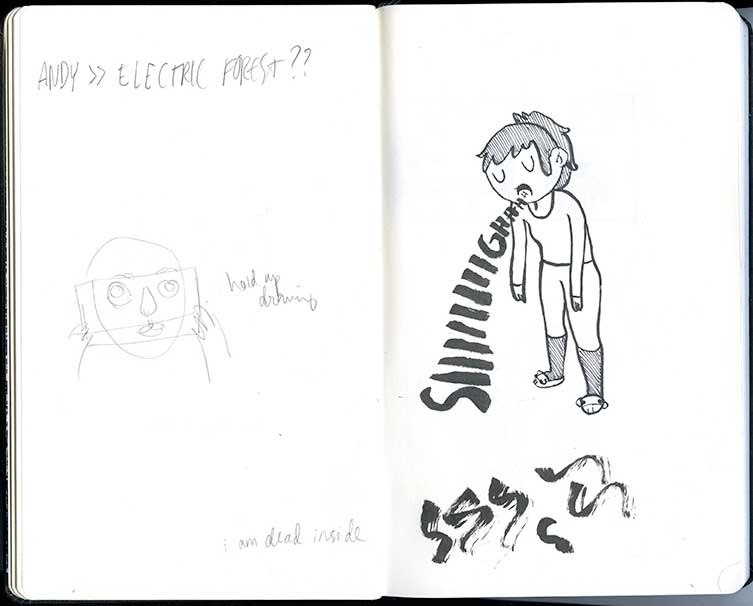 ANDY >> ELECTRIC FOREST??
hold up
drawing
i am dead inside
SIIIIIIIGHHHH
SSS